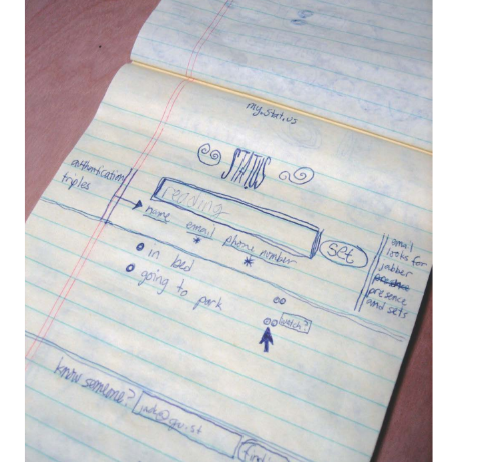 my.stat.us
STATUS
authenticating
triples
reading
set
name email phone number
in bed
going to park
watch?
email
looks for
jabber
presence
and sets
know someone?
find